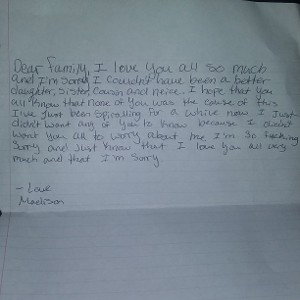 Dear Family, I love you all so much
and I'm sorry I couldn't have been a better
daughter, sister, cousin and neice. I hope that you
all know that none of you was the cause of this
I've just been spiralling for a while now I just
didn't want any of you to know because I didn't
want you all to worry about me I'm so fucking
sorry and just know that I love you all very
much and that I'm sorry.
- Love
Madison